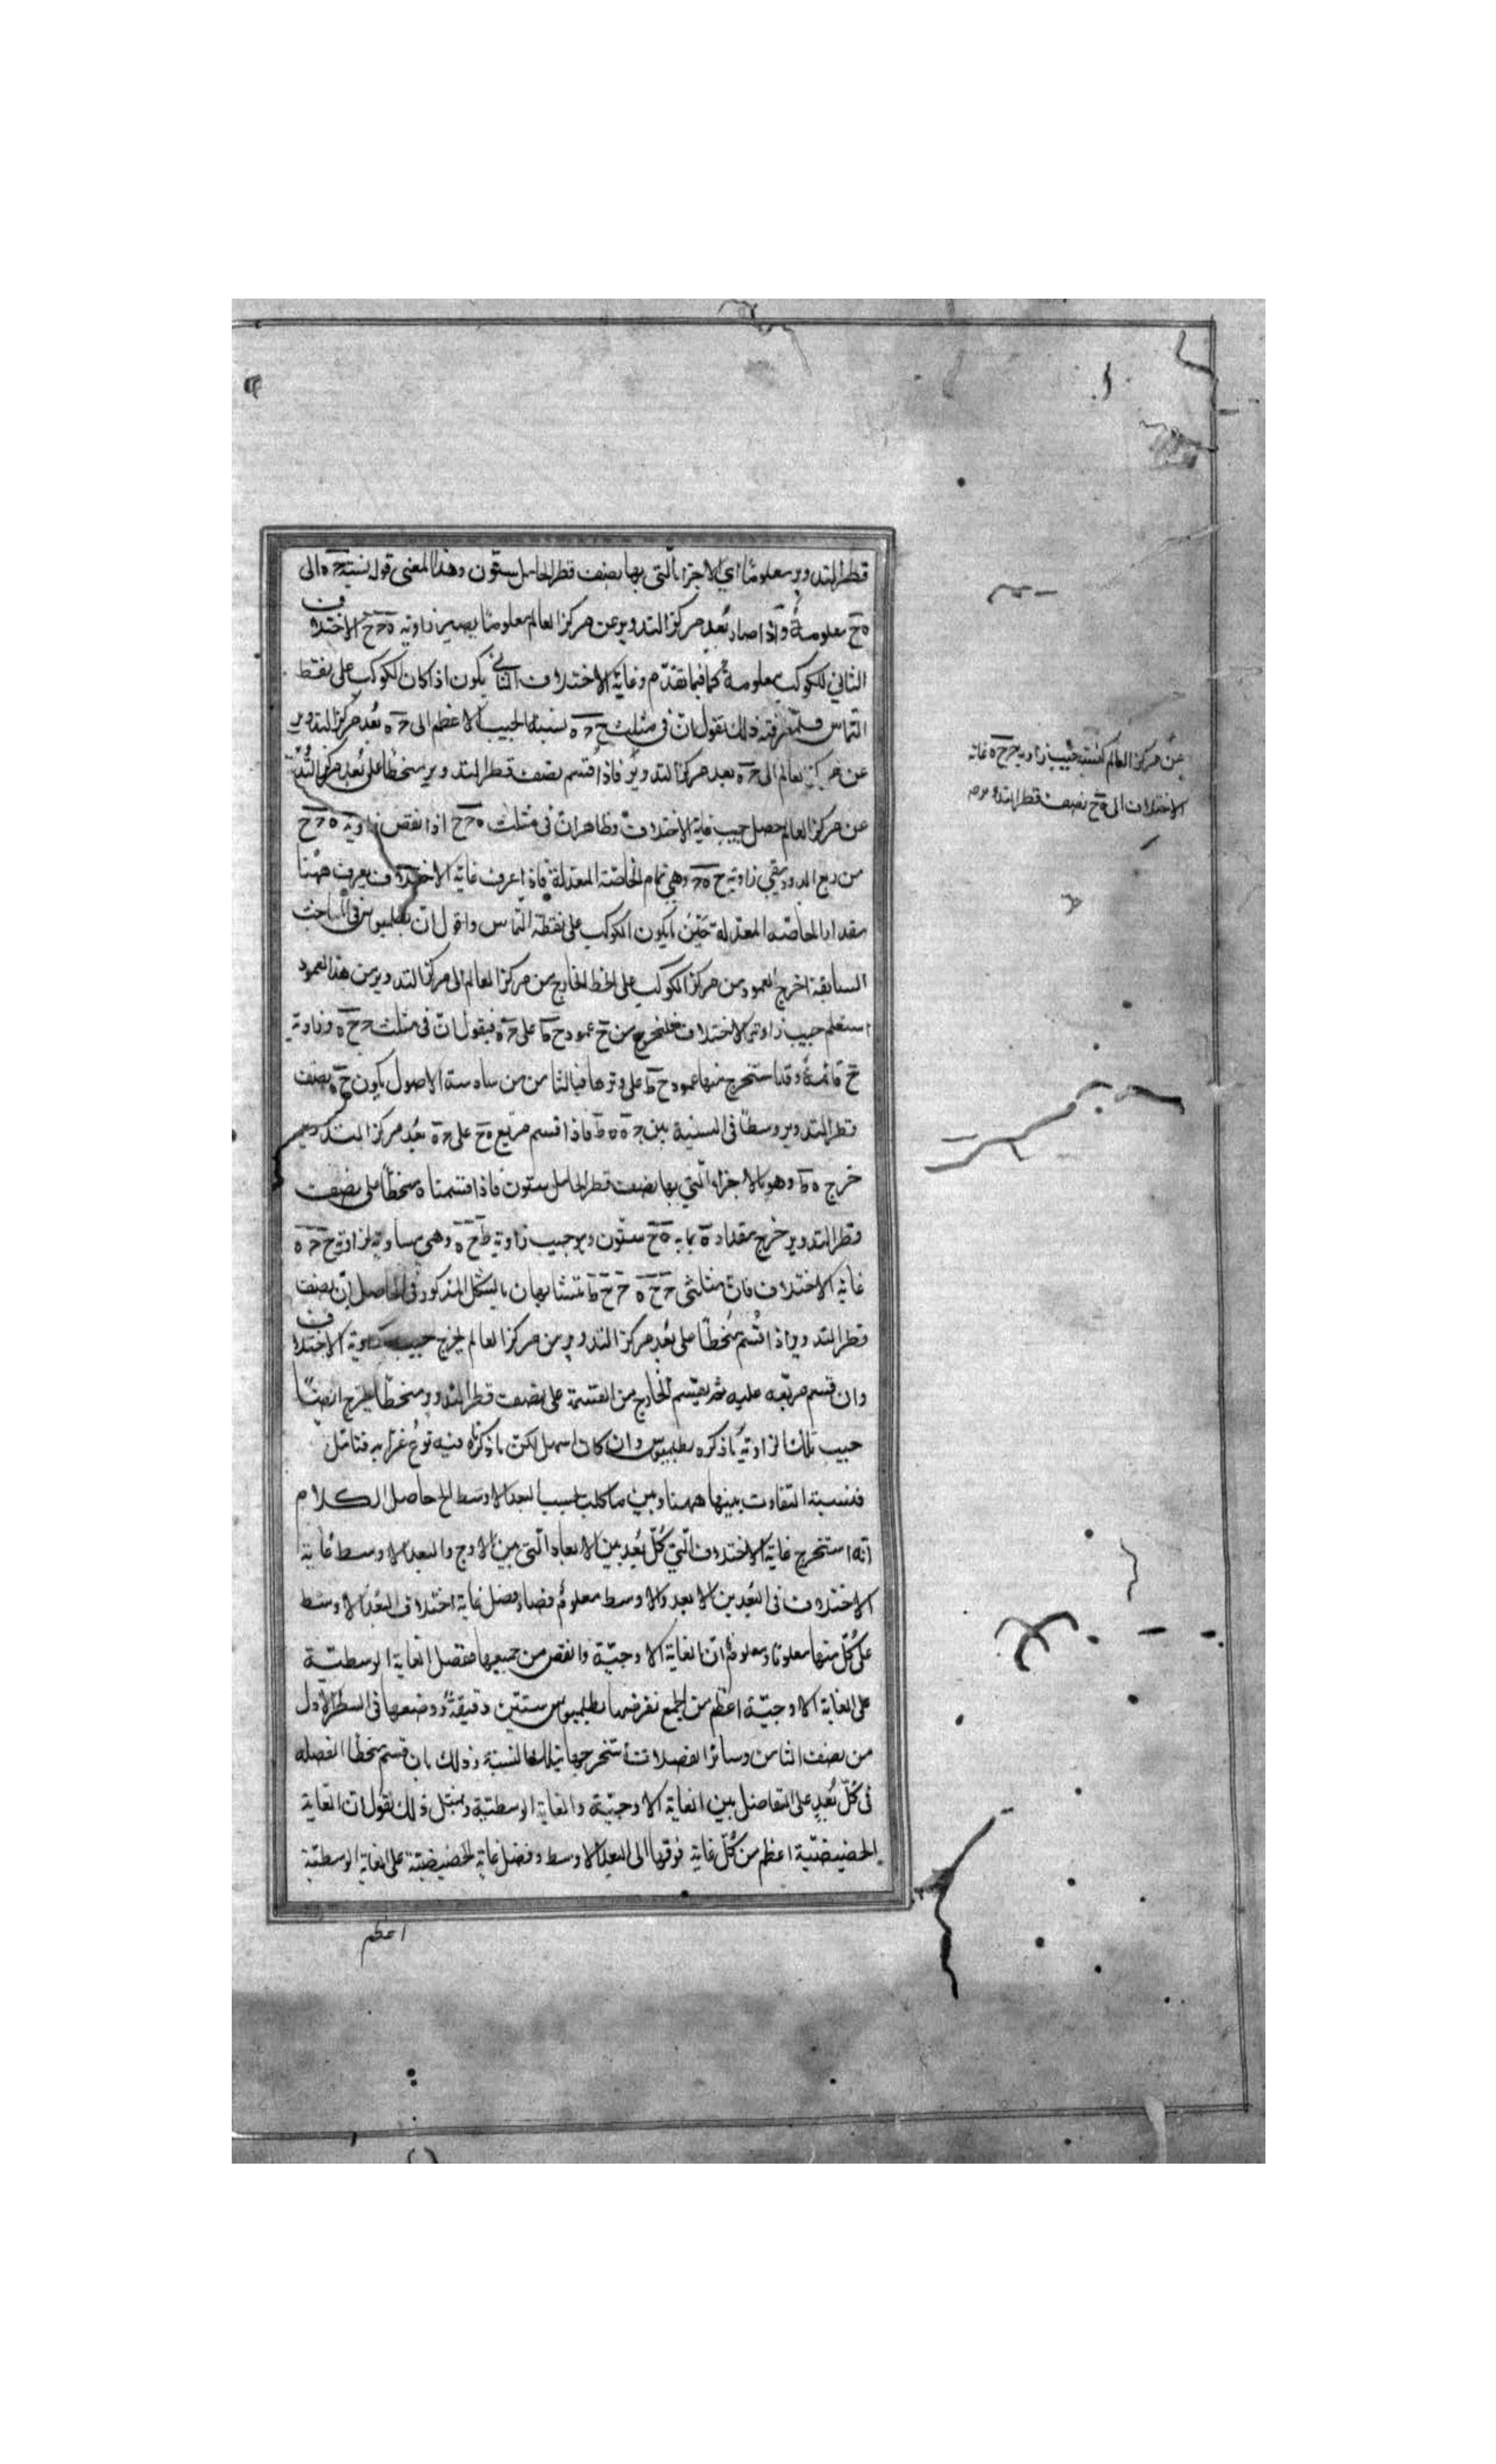 قطر التدوير معلومًا اي بالاجزاء التى بها نصف قطر الحامل ستون وهذا المعنى قوله نسبة حه الى
هح معلومة واذا صار بُعد مركز التدوير عن مركز العالم معلومًا يصير زاوية هحح الاختلاف
الثاني للكوكب معلومة كما فيما تقدّم وغاية الاختلاف الثاني يكون اذا كان الكوكب على نقطة
التماس فلمعرفة ذلك نقول انّ فى مثلث ححه نسبة الجيب الاعظم الى حه بُعد مركز التدوير
عن مركز العالم الى حه بعد مركز التدوير فاذا قُسم نصف قطر التدوير منحطًا على بُعد مركز التدوير
عن مركز العالم حصل جيب غاية الاختلاف وظاهر انّ فى مثلث هحح اذا نقص زاوية هحح
من ربع الدور بقي زاوية ححه وهي تمام الخاصّة المعدلة فاذا عرف غاية الاختلاف يعرف ههنا
مقدار الخاصّه المعدلة حين ما يكون الكوكب على نقطة التماس واقول انّ بطلميوس فى المباحث
السابقة اخرج العمود من مركز الكوكب على الخط الخارج من مركز العالم الى مركز التدوير من هذا العمود
استعلم جيب زاوية الاختلاف فلنخرج من ح عمود حط على حه فنقول انّ فى مثلث ححه وزاوية
ح قائمة وقد استخرج منها عمود حط على وترها فبالثامن من سادسة الاصول يكون حه نصف
قطر التدوير وسطًا فى النسبة بين حه هط فاذا قسم مربّع هح على حه بُعد مركز التدوير
خرج هط وهو بالاجزاء التي بها نصف قطر الحامل ستون فاذا قسمناه منحطًا على نصف
قطر التدوير خرج مقداره بما به هح ستّون وهو جيب زاوية طحه وهي مساوية لزاوية ححه
غاية الاختلاف فانّ مثلثى ححه ححط متشابهان بالشكل المذكور فى الحاصل انّ نصف
قطر التدوير اذا قُسم منحطًا على بُعد مركز التدوير من مركز العالم يخرج جيب زاوية الاختلاف
وان قسم مربّعه عليه ثم يقسم الخارج من القسمة على نصف قطر التدوير منحطًا يخرج ايضًا
جيب تلك الزاوية ما ذكره بطلميوس وان كان اسهل لكن ما ذكرناه فيه نوع غرابة فتامّل
فنسبة التفاوت بينها ههنا وبين ما كانت بحسب البعد الاوسط الخ حاصل الكلام
انّه استخرج غاية الاختلاف التي كلّ بُعد من الابعاد التى بين الاوج والبعد الاوسط غاية
الاختلاف فى البُعدين الابعد والاوسط معلوم فصار فضل غاية اختلاف البُعد الاوسط
على كلّ منها معلومًا ومعلوم انّ الغاية الاوجيّة وانقص من جميعها ففضل الغاية الوسطيّة
على الغاية الاوجيّة اعظم من الجميع نفرضها بطلميوس ستين دقيقة ووضعها فى السطر الاول
من نصف الثامن وسائر الفضلات استخرجها بتلك النسبة وذلك بان قسم منحطا الفضله
فى كلّ بُعد على التفاضل بين الغاية الاوجيّة والغاية الوسطيّة وبمثل ذلك نقول انّ الغاية
الحضيضيّة اعظم من كلّ غاية فوقها الى البعد الاوسط وفضل غاية الحضيضيّة على الغاية الوسطيّة
اعظم
عن مركز العالم كنسبة جيب زاوية ححه غاية
الاختلاف الى هح نصف قطر التدوير